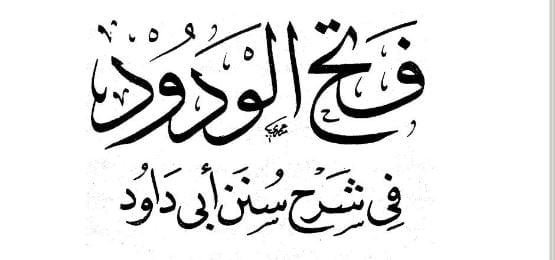 فَتْحُ الوَدُود
فِي شَرْح سُنَن أبي دَاوُد